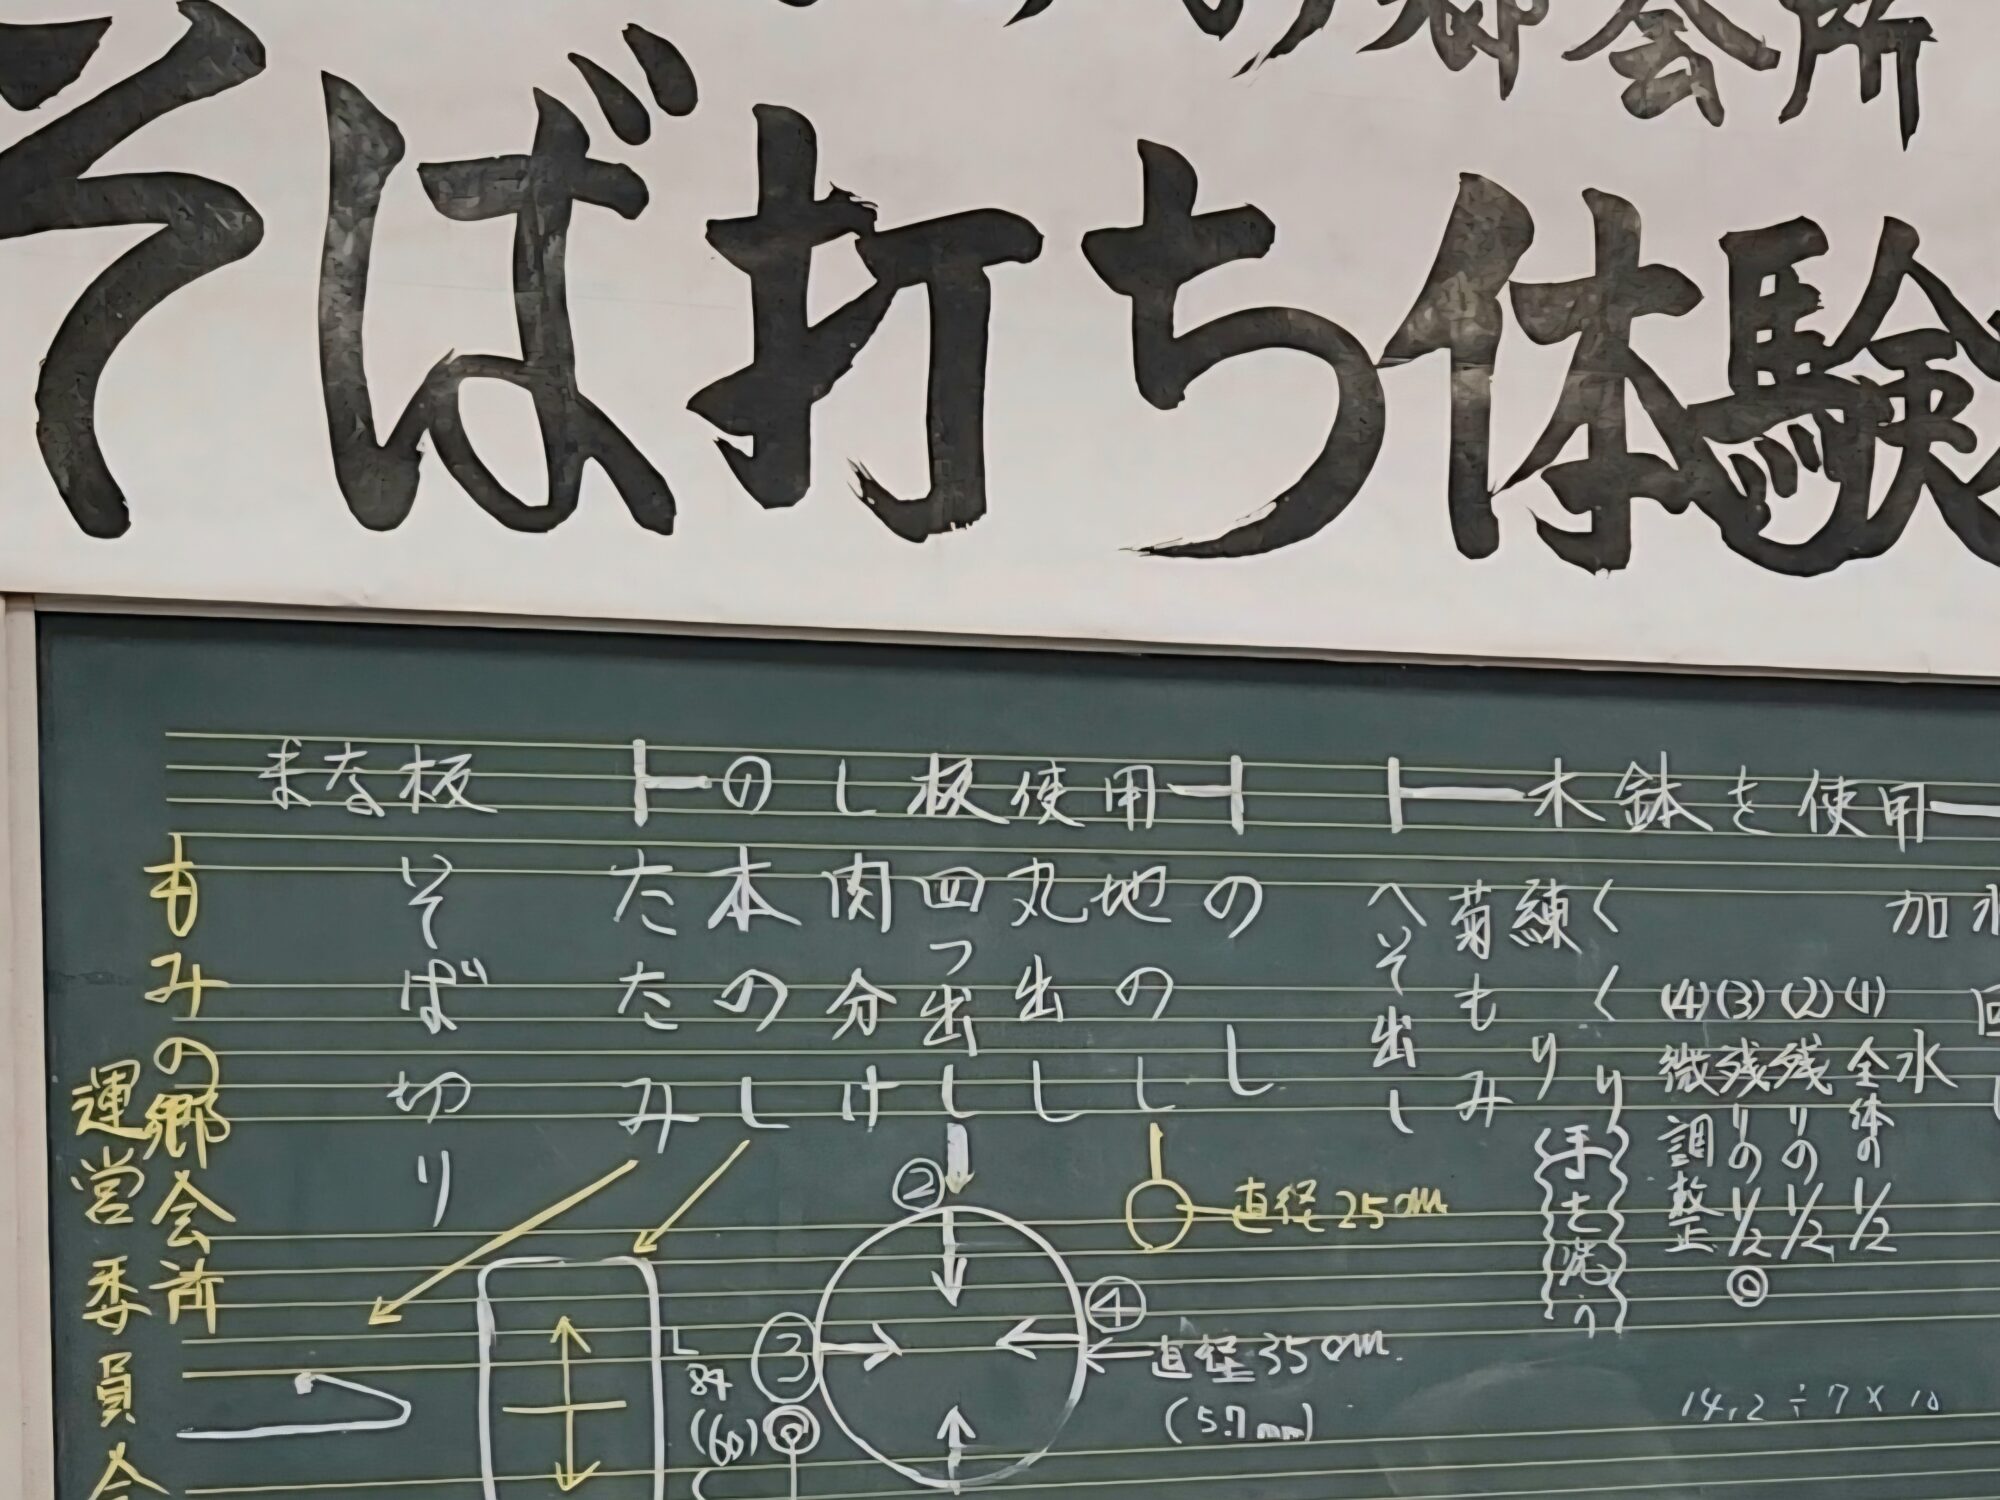 郷会所
そば打ち体験
木鉢を使用
のし板使用
まな板
加水
水
(1)全体の1/2
(2)残りの1/2
(3)残りの1/2◎
(4)微調整
くくり
練り
手を洗う
菊もみ
へそ出し
のし
地のし
直径25cm
丸出し
四つ出し
②
③
④
直径35cm
(5.7mm)
肉分け
本のし
たたみ
そば切り
84
(60)
14.2÷7×10
もみの郷会所
運営委員会